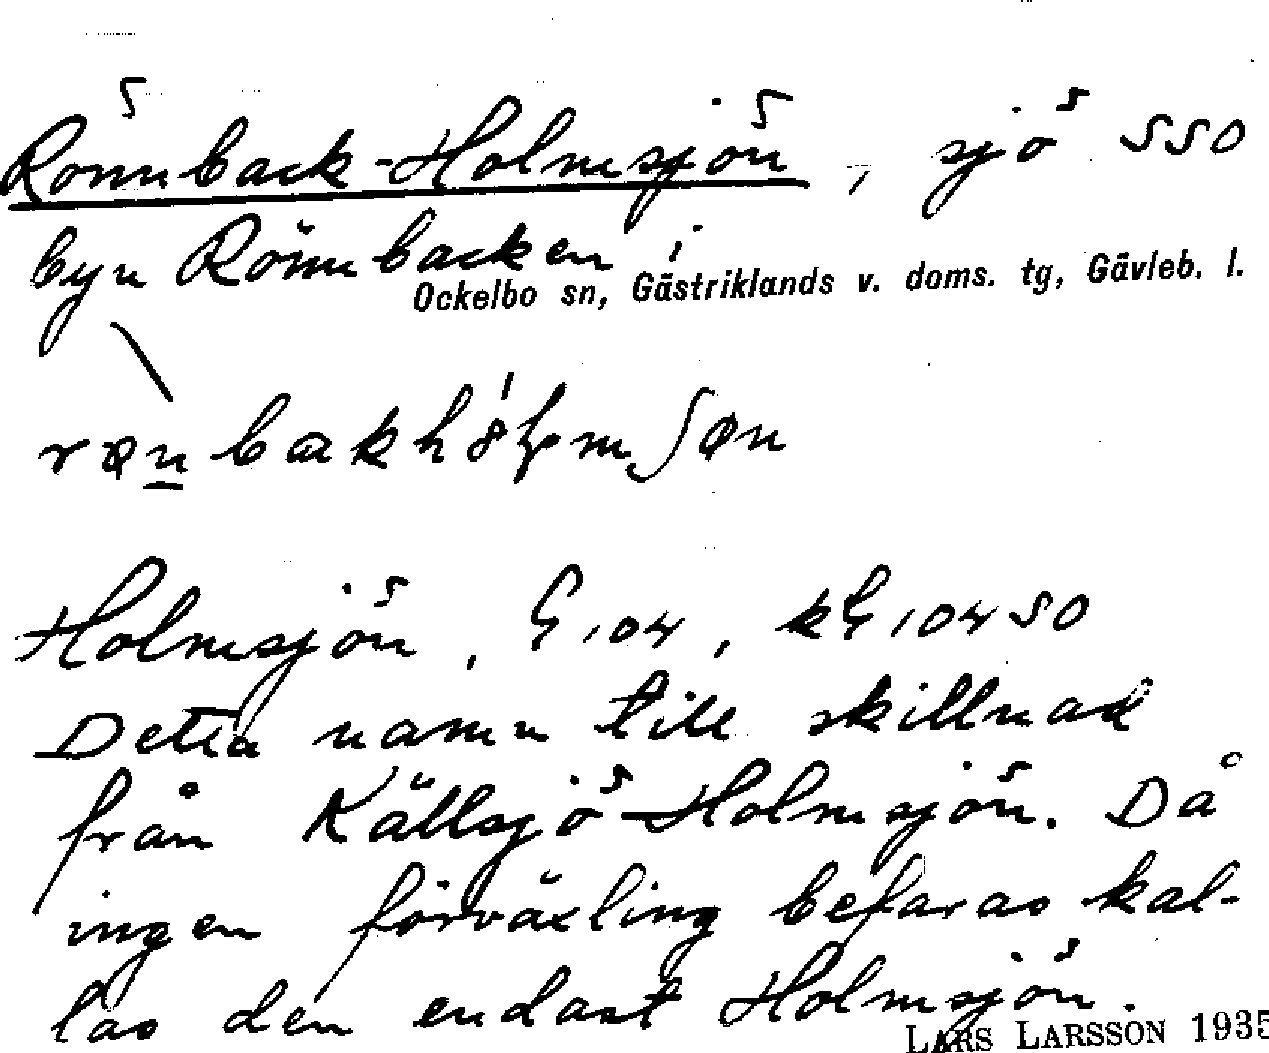 Rönnback-Holmsjön, sjö SSO
byn Rönnbacken i
Ockelbo sn, Gästriklands v. doms. tg, Gävleb. l.
Holmsjön, G 104, kG 104 SO
Detta namn till skillnad
från Källsjö-Holmsjön. Då
ingen förväxling befaras kal-
las den endast Holmsjön.
LARS LARSSON 1935